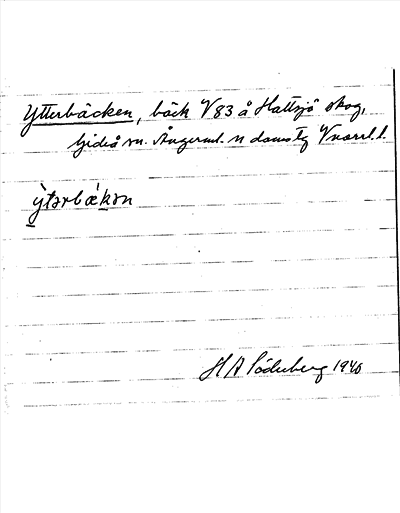 Ytterbäcken, bäck V83 å Hattsjö skog,
Gideå sn. Ångerml. n domsg Vnorrl. l.
ỳtərbǽkən
H A Söderberg 1940